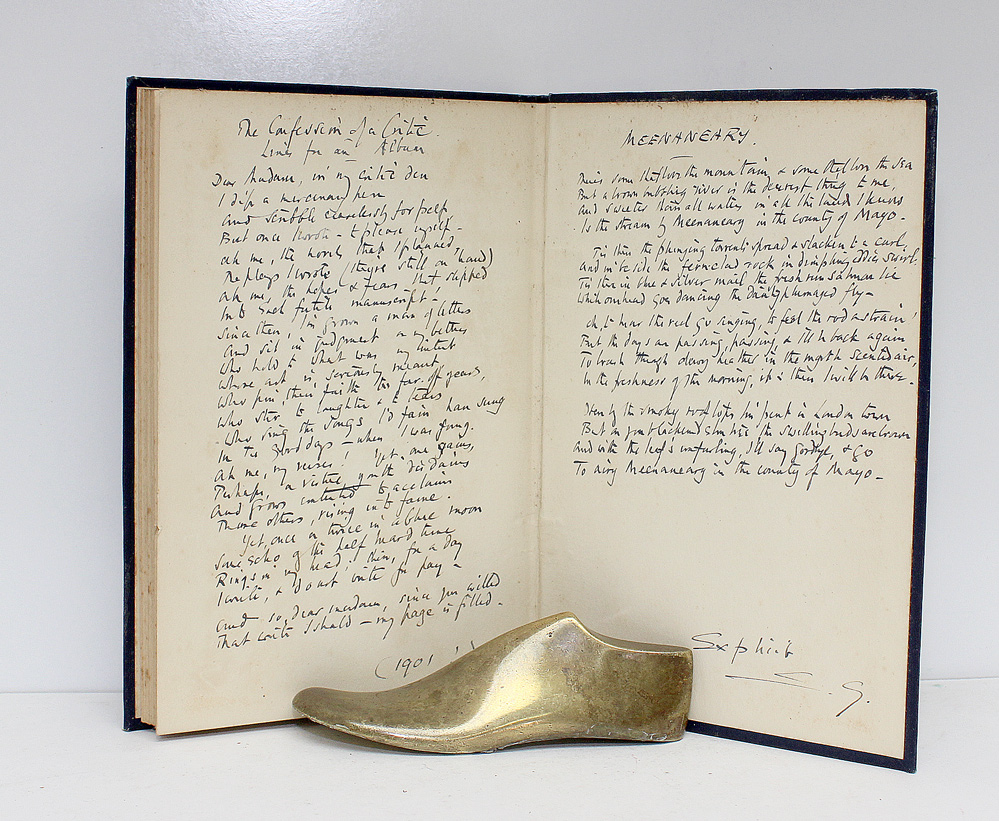 The Confession of a Critic.
Lines for an Album
Dear Madam, in my critic den
I dip a mercenary pen
And scribble ceaselessly for pelf
But once I wrote - to please myself.
Ah me, the novels that I planned,
The plays I wrote (they're still on hand)
Ah me, the hopes & fears that slipped
Into each futile manuscript -
Since then, I'm grown a man of letters
And sit in judgment on my betters
Who hold to what was my intent
Whose art is seriously meant,
Who pin their faith to far-off years,
Who stir to laughter & to tears
Who sing the songs I'd fain have sung
In the good days - when I was young.
Ah me, my verses! Yet one gains,
Perhaps, a virtue youth disdains
And grows contented to acclaim
Those others, rising into fame.
Yet, once or twice in a blue moon
Some echo of the half heard tune
Rings in my head; then, for a day
I write, & do not write for pay -
And so, dear madam, since you willed
That write I should - my page is filled -
(1901
MEENANEARY.
There's some that love the mountain & some that love the sea
But a brown rushing river is the dearest thing to me,
And sweeter than all waters in all the land I know
Is the stream by Meenaneary in the county of Mayo -
'Tis there the plunging torrents spread & slacken to a curl,
And in beside the fern clad rock in dimpling eddies swirl
'Tis there in blue & silver mail the fresh run salmon lie
While overhead goes dancing the daintyplumaged fly -
Oh, to hear the reel go singing, to feel the rod a strain!
But the days are passing, passing, & I'll be back again
To brush through dewy heather in the myrtle scented air,
In the freshness of the morning, it's then I will be there -
Even by the smoky rooftops I'm pent in London town
But on your blackened elm tree the swelling buds are brown
And with the leaf's unfurling, I'll say Goodbye, & go
To airy Meenaneary in the county of Mayo -
Explicit
S. G.